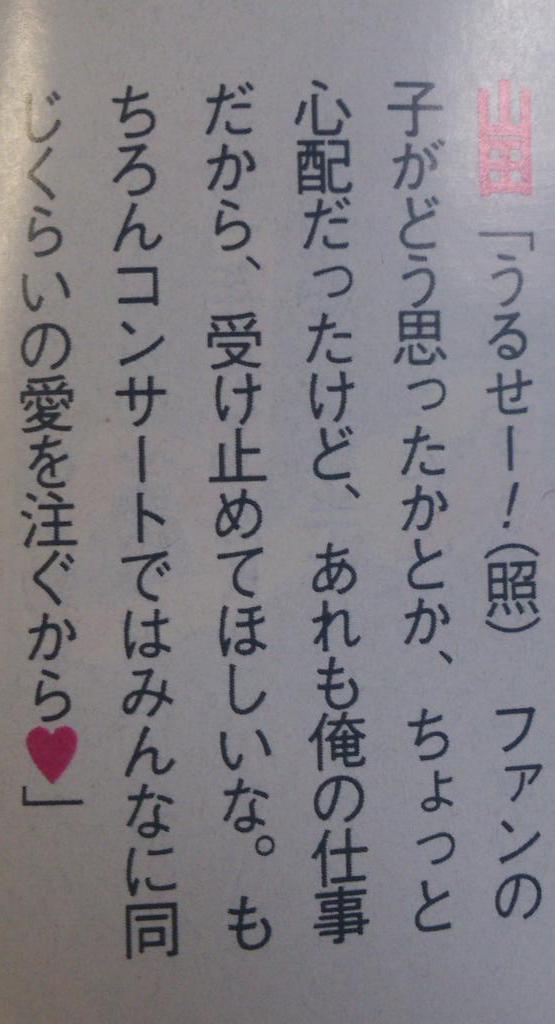 山田「うるせー！(照)　ファンの
子がどう思ったかとか、ちょっと
心配だったけど、あれも俺の仕事
だから、受け止めてほしいな。も
ちろんコンサートではみんなに同
じくらいの愛を注ぐから♥」